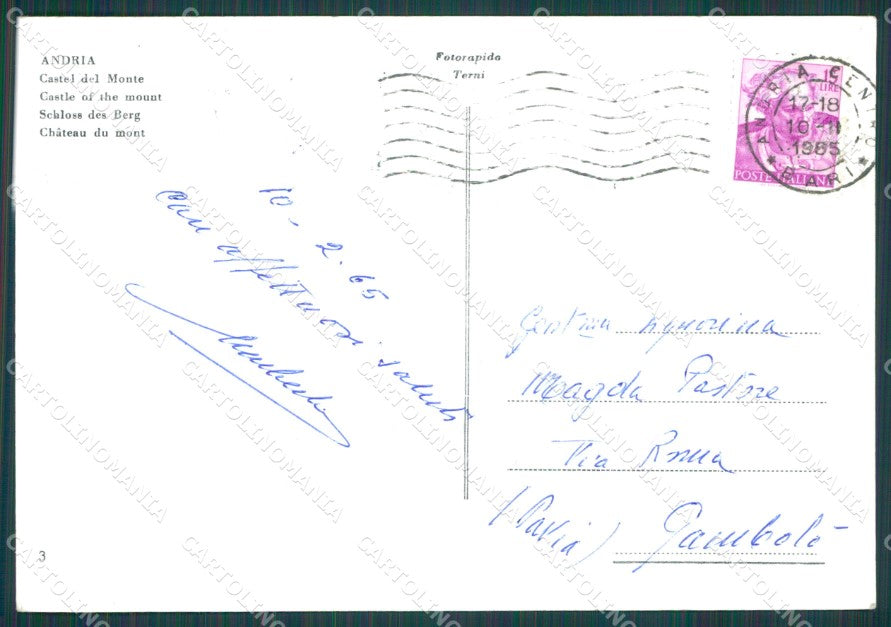 ANDRIA
Castel del Monte
Castle of the mount
Schloss des Berg
Château du mont
Fotorapido
Terni
15
LIRE
POSTE ITALIANE
ANDRIA CENTRO
17-18
10-II
1965
* BARI *
10-2-65
Cari affettuosi saluti
Umberto
Gent.ma Signorina
Magda Pastore
Via Roma
(Pavia) Gambolò
3
CARTOLINOMANIA